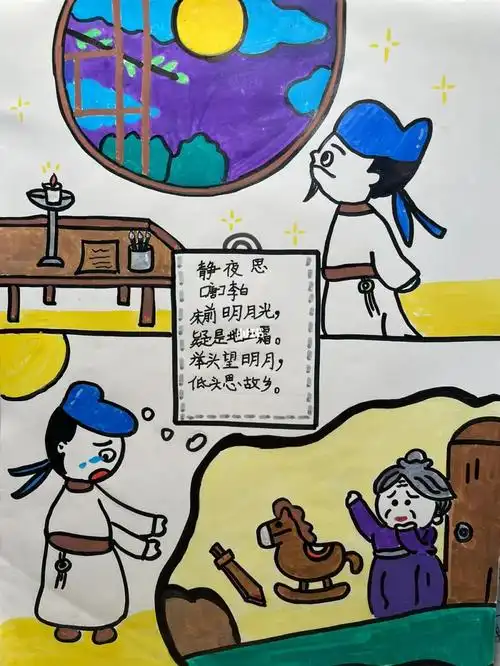 静夜思
[唐]李白
床前明月光,
疑是地上霜。
举头望明月,
低头思故乡。